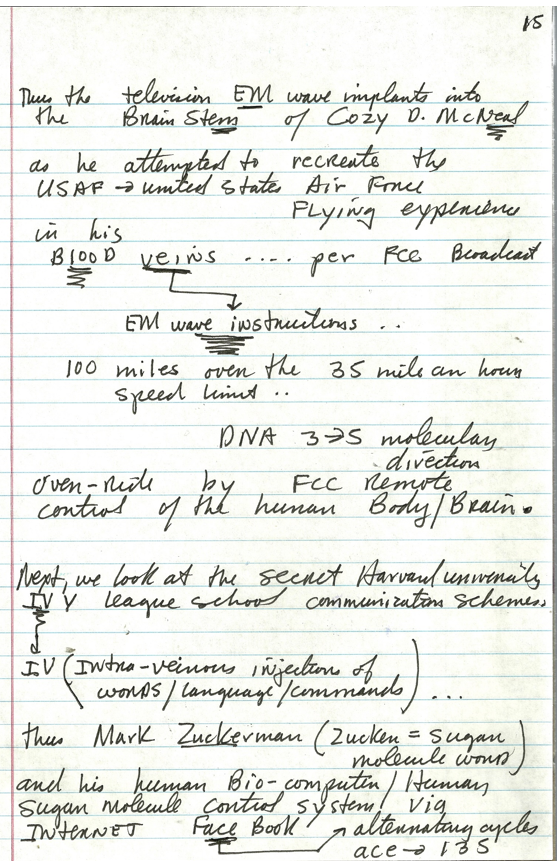 15
Thus the television EM wave implants into
the Brain Stem of Cozy D. McNeal
as he attempted to recreate the
USAF → united states Air Force
Flying experience
in his
B100D veins .... per FCC Broadcast
EM wave instructions ..
100 miles over the 35 mile an hour
speed limit ..
DNA 3→5 molecular
direction
over-ride by FCC Remote
control of the human Body/Brain.
Next, we look at the secret Harvard university
IVY league school communication schemes.
IV (Intra-veinous injections of
words/language/commands) ...
thus Mark Zuckerman (Zucker = sugar
molecule words)
and his human Bio-computer/Human
sugar molecule control system! via
INTERNET Face Book → alternating cycles
ace → 135